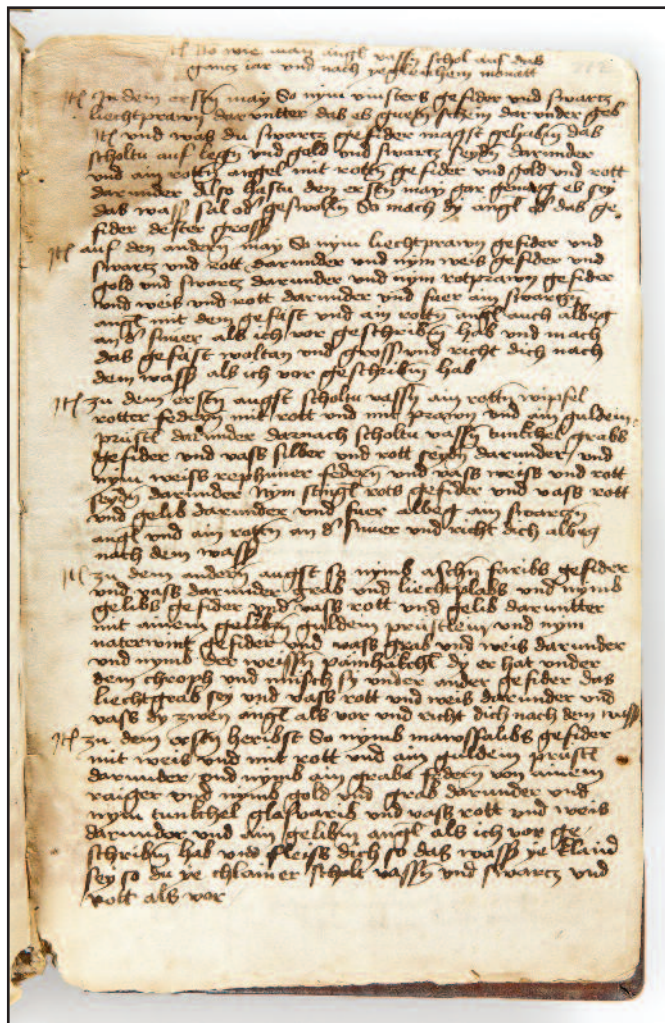 Itl So wie man angl vassn schol auf das
gantz iar und nach yegleichem monatt
Itl In dem ersten may So nym vinsters gefider und swartz
liechtprawn darunter das es guetn schein darunder geb
Itl und was du swartz gefider magst gehabn das
scholtu auf legn und gold und swartz seydn darunder
und ain rottn anggel mit rottn gefider und gold und rott
darunder Also hastu den erstn may gar genueg es sey
das wass sal od geswolln So mach dy angl od das ge
fider dester gross
Itl auf den andern may So nym liechtprawn gefider und
swartz und rott darunder und nym weis gefider und
gold und swartz darunder und nym rotprawn gefider
und weis und rott darunder und fuer ain swartzn
angl mit dem gefast und ain rottn angl auch albeg
an d snuer als ich vor geschribn hab und mach
das gefast woltan und gross und richt dich nach
dem wass als ich vor geschribn hab
Itl zu dem erstn augst scholtu vassn ain rottn wipfel
rotter federn mit rott und mit prawn und ain guldein
prüstl darunder darnach scholtu vassn tunkchel grabs
gefider und vass silber und rott seydn darunder und
nym weiss rephuner federn und vass weiss und rott
seydn darunder Nym stingl rots gefider und vass rott
und gelib darunder und fuer albeg ain swartzn
angl und ain rottn an d snuer und richt dich albeg
nach dem wass
Itl zu dem andern augst so nymb aschn faribs gefider
und vass darunder grab und liechtplabs und nymb
gelibs gefider und vass rott und gelib darunter
mit ainem gelibn guldein prüstlein und nym
naterwint gefider und vass grab und weis darunder
und nymb der weissn pamhakchl dy er hat under
dem chroph und misch sy under ander gefider das
liechtgrab sey und vass rott und weis darunder und
vass dy zwen angl als vor und richt dich nach dem wass
Itl zu dem erstn heribst So nymb mawsfalibs gefider
mit weis und mit rott und ain guldein prüstl
darunder und nymb ain grabe federn von ainem
raiger und nymb gold und grab darunder und
nym tunkchel glasvaribs und vass rott und weis
darunder und ain gelibn angl als ich vor ge
schribn hab und fleiss dich so das wass ye klain
sey so du ye chlainer scholt vassn und swartz und
rott als vor